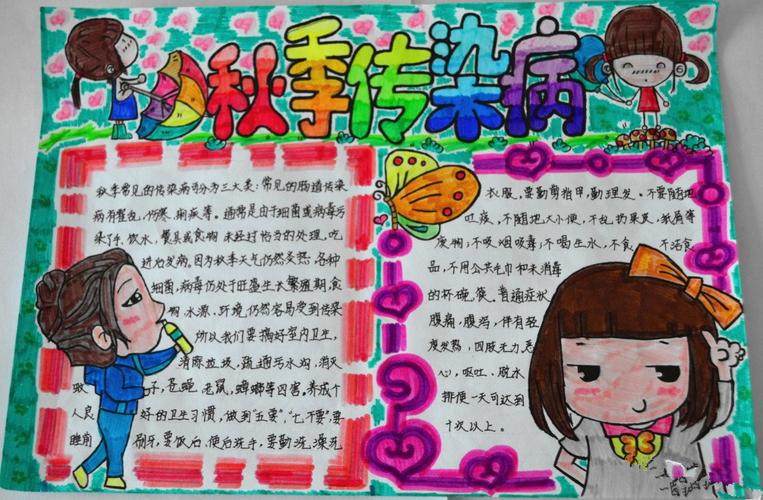 秋季传染病
秋季常见的传染病可分为三大类：常见的肠道传染
病有霍乱，伤寒，痢疾等。通常是由于细菌或病毒污
染了手，饮水，餐具或食物，未经过恰当的处理，吃
进后发病，因为秋季天气仍然炎热，各种
细菌，病毒仍处于旺盛生长繁殖期，食
物，水源，环境仍然容易受到传染
所以我们要搞好室内卫生，
清除垃圾，疏通污水沟，消灭
蚊子，苍蝇，老鼠，蟑螂等四害。养成个
人良好的卫生习惯，做到“五要”，“七不要”，要
睡前刷牙，要饭后，便后洗手，要勤洗，澡洗
衣服，要勤剪指甲，勤理发。不要随地
吐痰，不随地大小便，不乱扔果皮，纸屑等
废物；不吸烟吸毒，不喝生水，不食不洁食
品，不用公共毛巾和未消毒
的杯，碗，筷，普通症状
腹痛，腹泻，伴有轻
度发热，四肢无力，恶
心，呕吐，脱水
排便一天可达到
十次以上。